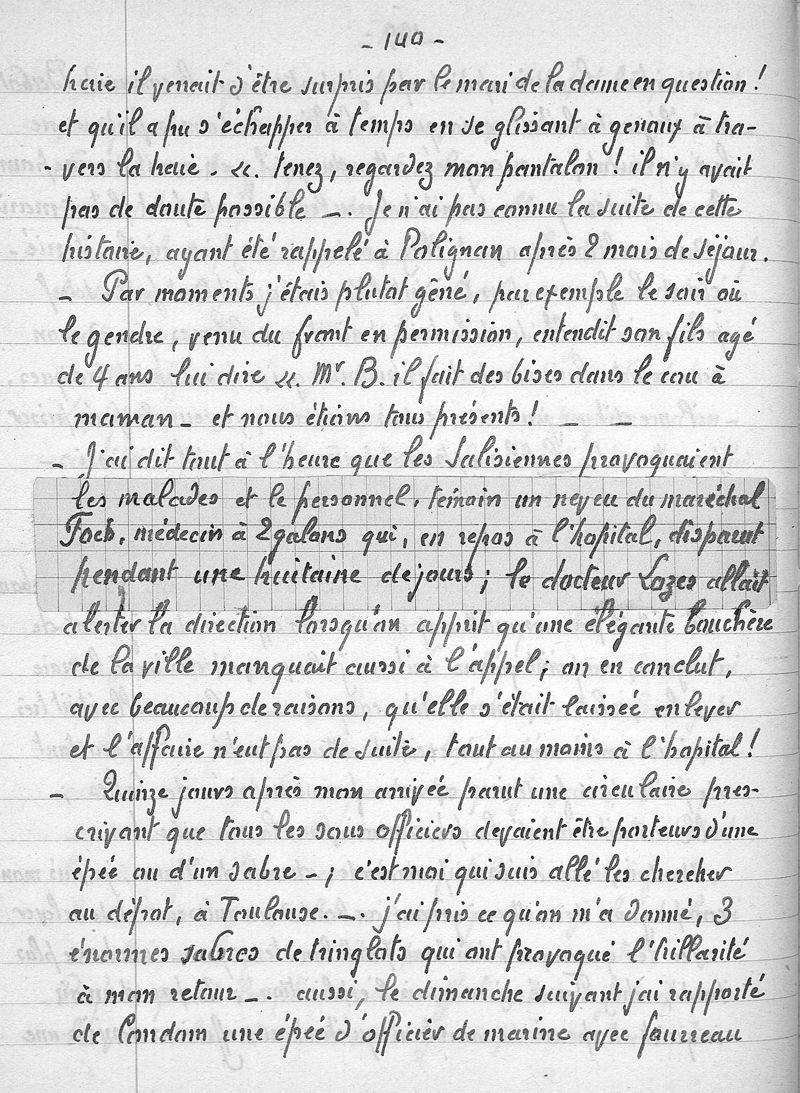 - 140 -
haie il venait d'être surpris par le mari de la dame en question !
et qu'il a pu s'échapper à temps en se glissant à genoux à tra-
- vers la haie . «. tenez, regardez mon pantalon ! il n'y avait
pas de doute possible _. Je n'ai pas connu la suite de cette
histoire, ayant été rappelé à Polignan après 2 mois de séjour.
_ Par moments j'étais plutot gêné, par exemple le soir où
le gendre, venu du front en permission, entendit son fils agé
de 4 ans lui dire «. Mr. B. il fait des bises dans le cou à
maman _ et nous étions tous présents ! _ _
_ J'ai dit tout à l'heure que les Salisiennes provoquaient
les malades et le personnel, témoin un neveu du maréchal
Foch, médecin à 2 galons qui, en repos à l'hopital, disparut
pendant une huitaine de jours ; le docteur Lozes allait
alerter la direction lorsqu'on apprit qu'une élégante bouchère
de la ville manquait aussi à l'appel ; on en conclut,
avec beaucoup de raisons, qu'elle s'était laissée enlever
et l'affaire n'eut pas de suite, tout au moins à l'hopital !
_ Quinze jours après mon arrivée parut une circulaire pres-
crivant que tous les sous officiers devaient être porteurs d'une
épée ou d'un sabre _ ; c'est moi qui suis allé les chercher
au dépot, à Toulouse. _. j'ai pris ce qu'on m'a donné, 3
énormes sabres de tringlots qui ont provoqué l'hillarité
à mon retour _. aussi, le dimanche suivant j'ai rapporté
de Condom une épée d'officier de marine avec fourreau